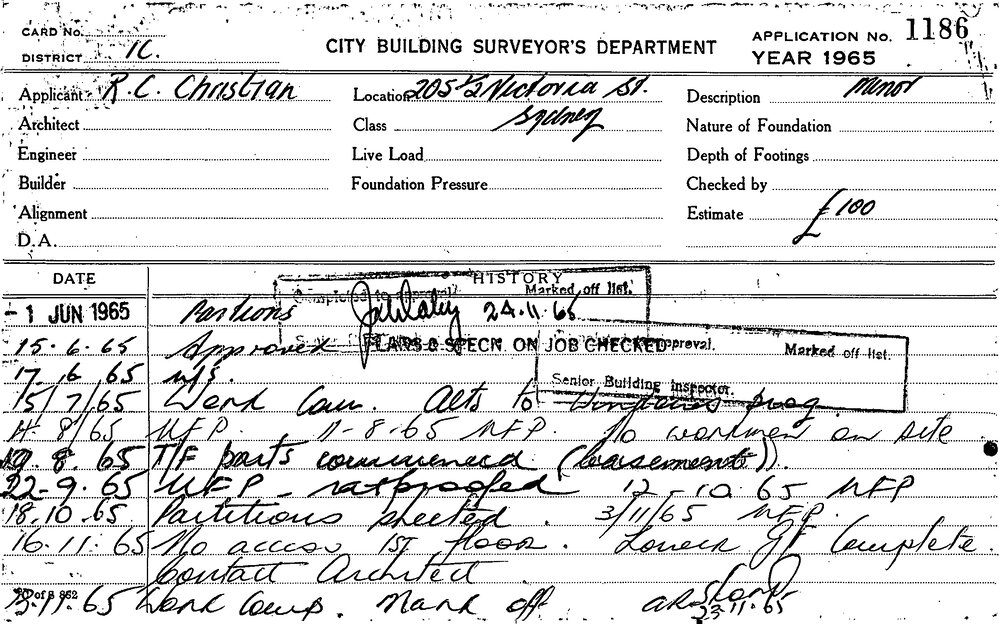 CARD No.
DISTRICT 1C.
CITY BUILDING SURVEYOR'S DEPARTMENT
APPLICATION No. 1186
YEAR 1965
Applicant R.C. Christian
Location 205½ Victoria St.
Sydney
Description Minor
Architect
Class
Nature of Foundation
Engineer
Live Load
Depth of Footings
Builder
Foundation Pressure
Checked by
Alignment
Estimate £100
D.A.
DATE
HISTORY
Completed to approval. Marked off list.
- 1 JUN 1965 Partions 24.11.65
15.6.65 Approved PLANS & SPECN. ON JOB CHECKED
approval. Marked off list.
17.6.65 N/S.
Senior Building Inspector.
15/7/65 Work Com. Alts to prog.
4.8/65 NFP. 11-8-65 NFP. No workmen on site
19.8.65 T/F parts commenced (basement).
22-9.65 NFP - ratproofed 12-10.65 NFP
18.10.65 Partitions erected. 3/11/65 NFP.
16.11.65 No access 1st floor. Lower GF Complete.
Contact Architect
.11.65 Work Comp. Mark off 23.11.65